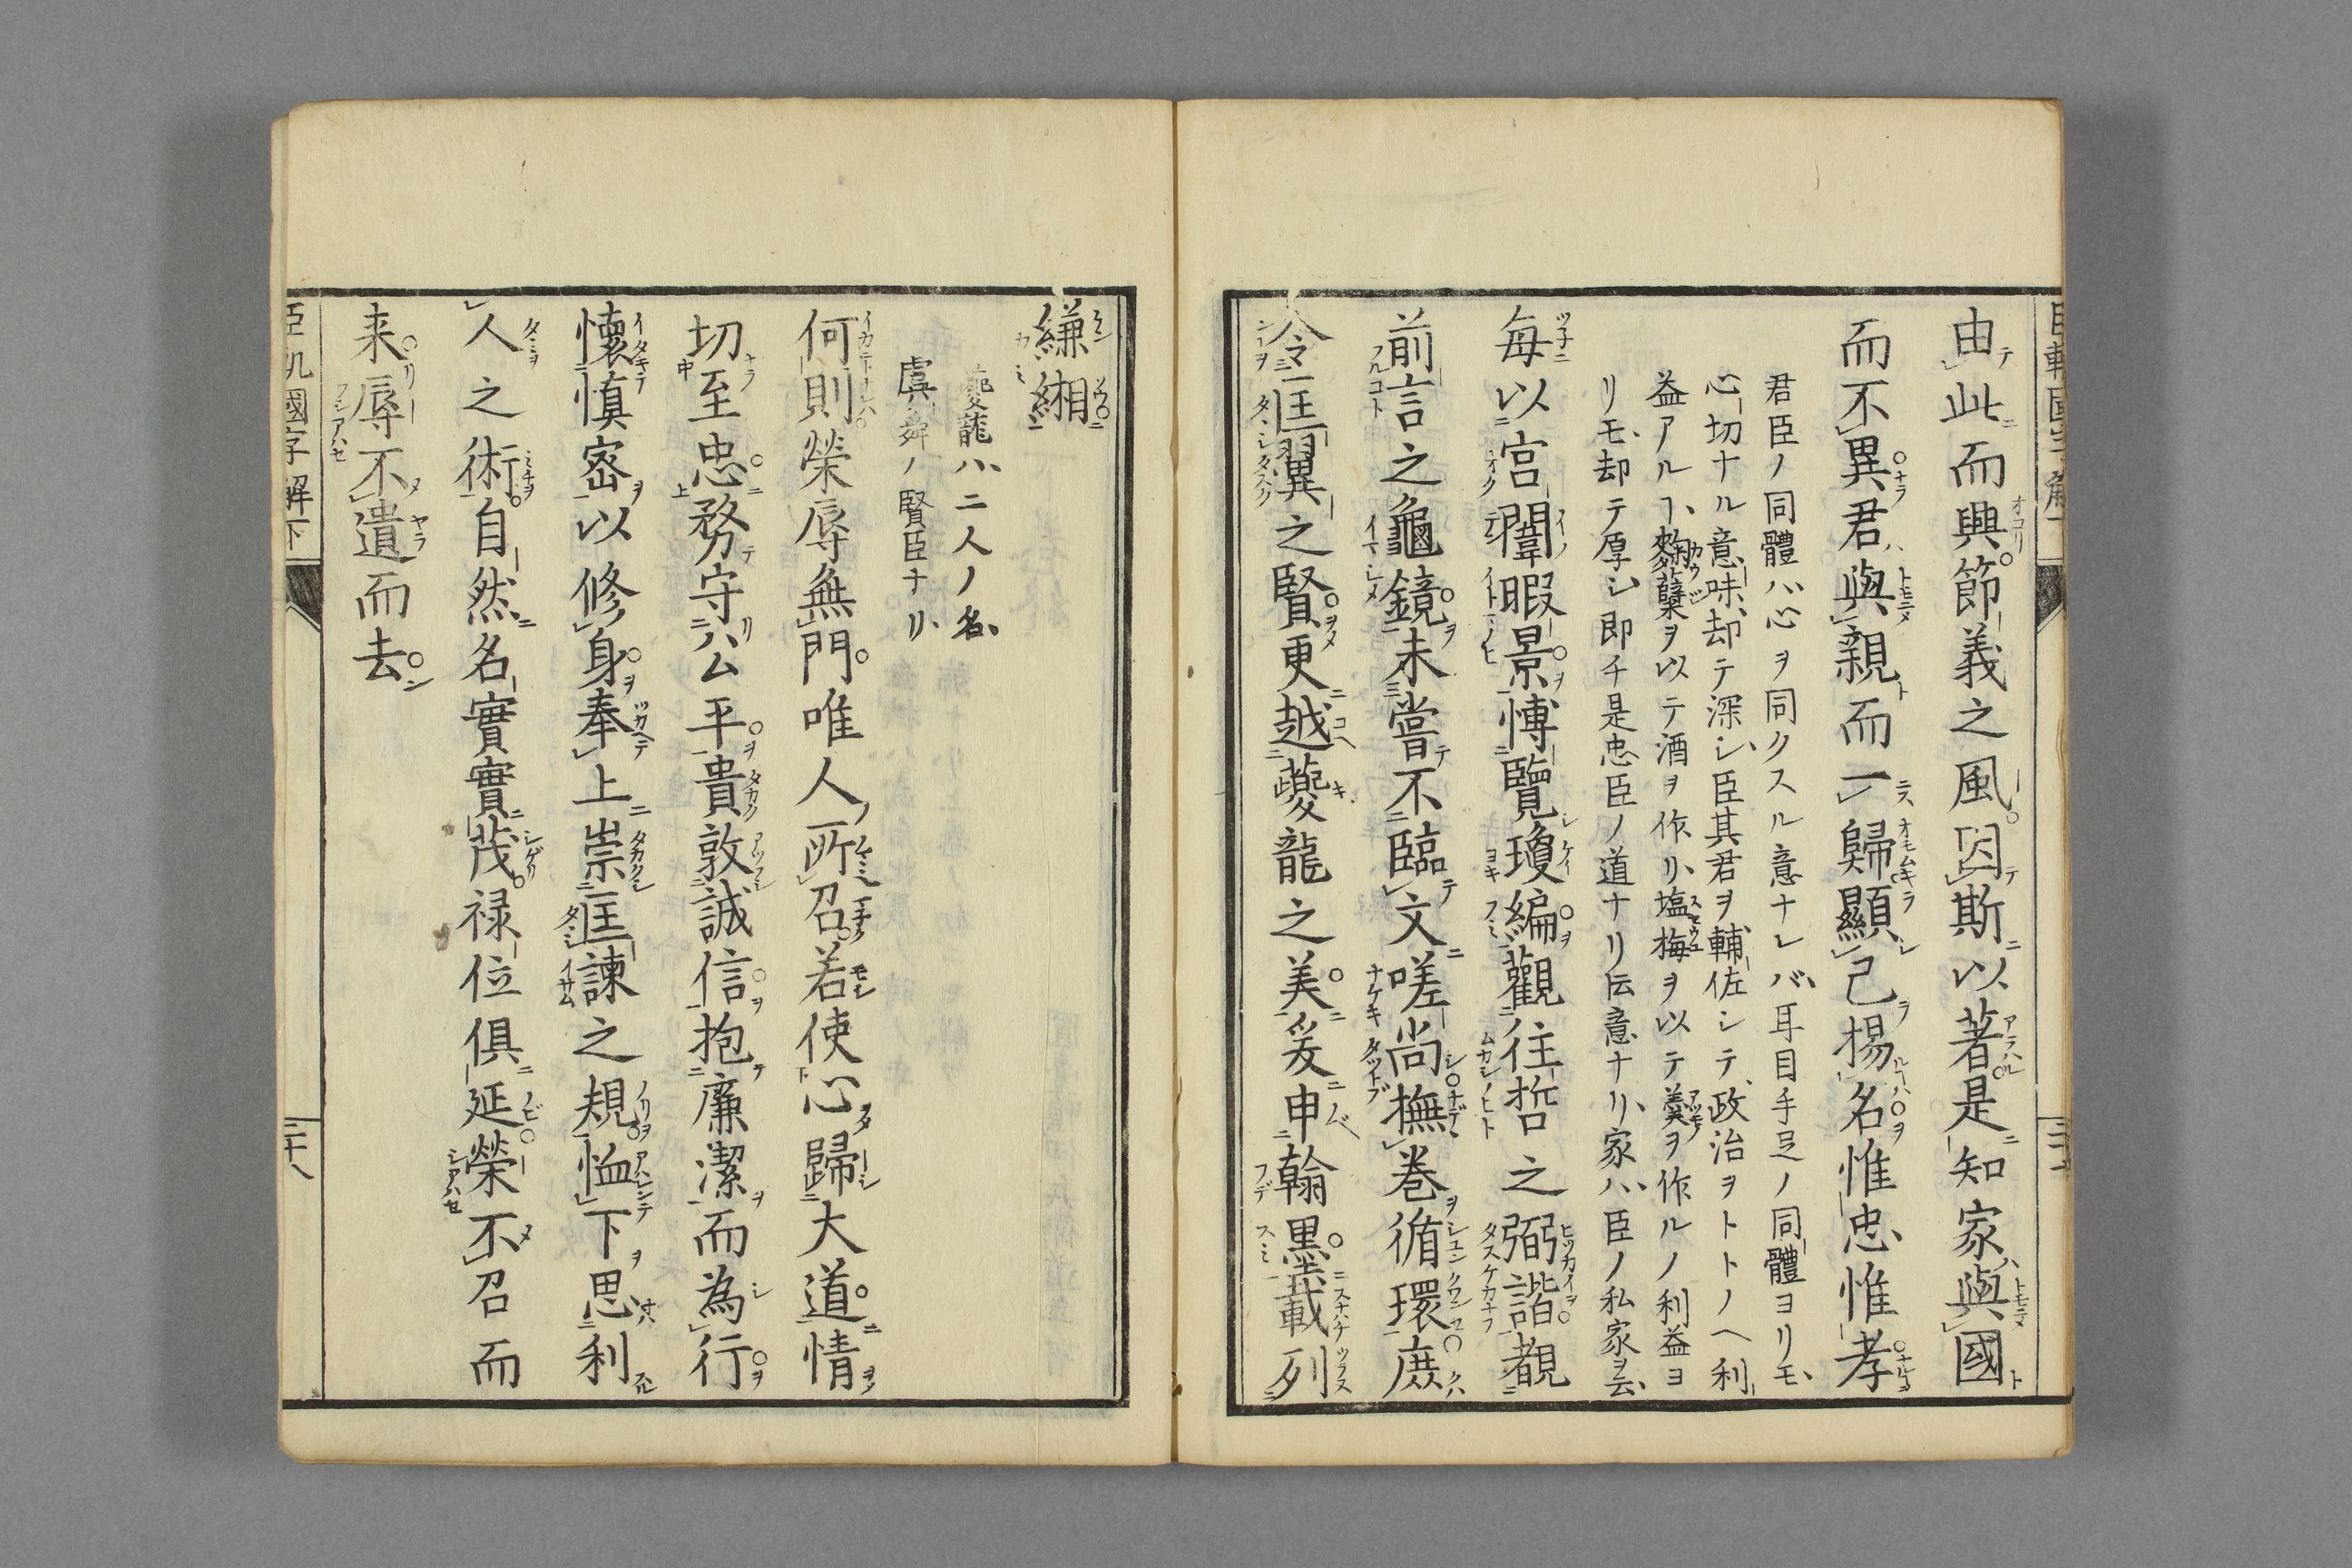 由此而興節義之風因斯以著是知家與國
而不異君與親而一歸顯己揚名惟忠惟孝
君臣ノ同體ハ心ヲ同クスル意ナレバ、耳目手足ノ同體ヨリモ、
心切ナル意味、却テ深シ、臣其君ヲ輔佐シテ、政治ヲトトノヘ利
益アルヿ、麴蘖ヲ以テ酒ヲ作リ、塩梅ヲ以テ羹ヲ作ルノ利益ヨ
リモ、却テ厚シ、即チ是忠臣ノ道ナリ伝意ナリ、家ハ、臣ノ私家ヲ云、
每以宮闈暇景博覽瓊編觀往哲之弼諧覩
前言之龜鏡未嘗不臨文嗟尚撫巻循環庶
令匡翼之賢更越夔龍之美爰申翰墨載列
縑緗
夔龍ハ、二人ノ名、
虞舜ノ賢臣ナリ、
何則榮辱無門唯人所召若使心歸大道情
切至忠務守公平貴敦誠信抱廉潔而為行
懐慎密以修身奉上崇匡諫之規恤下思利
人之術自然名實實茂禄位俱延榮不召而
来辱不遣而去
臣軌國字解下